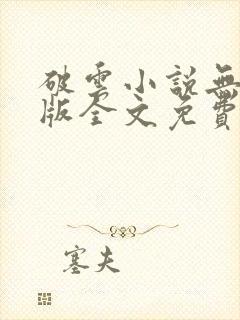 破雲小說無
版全文免費
塞夫